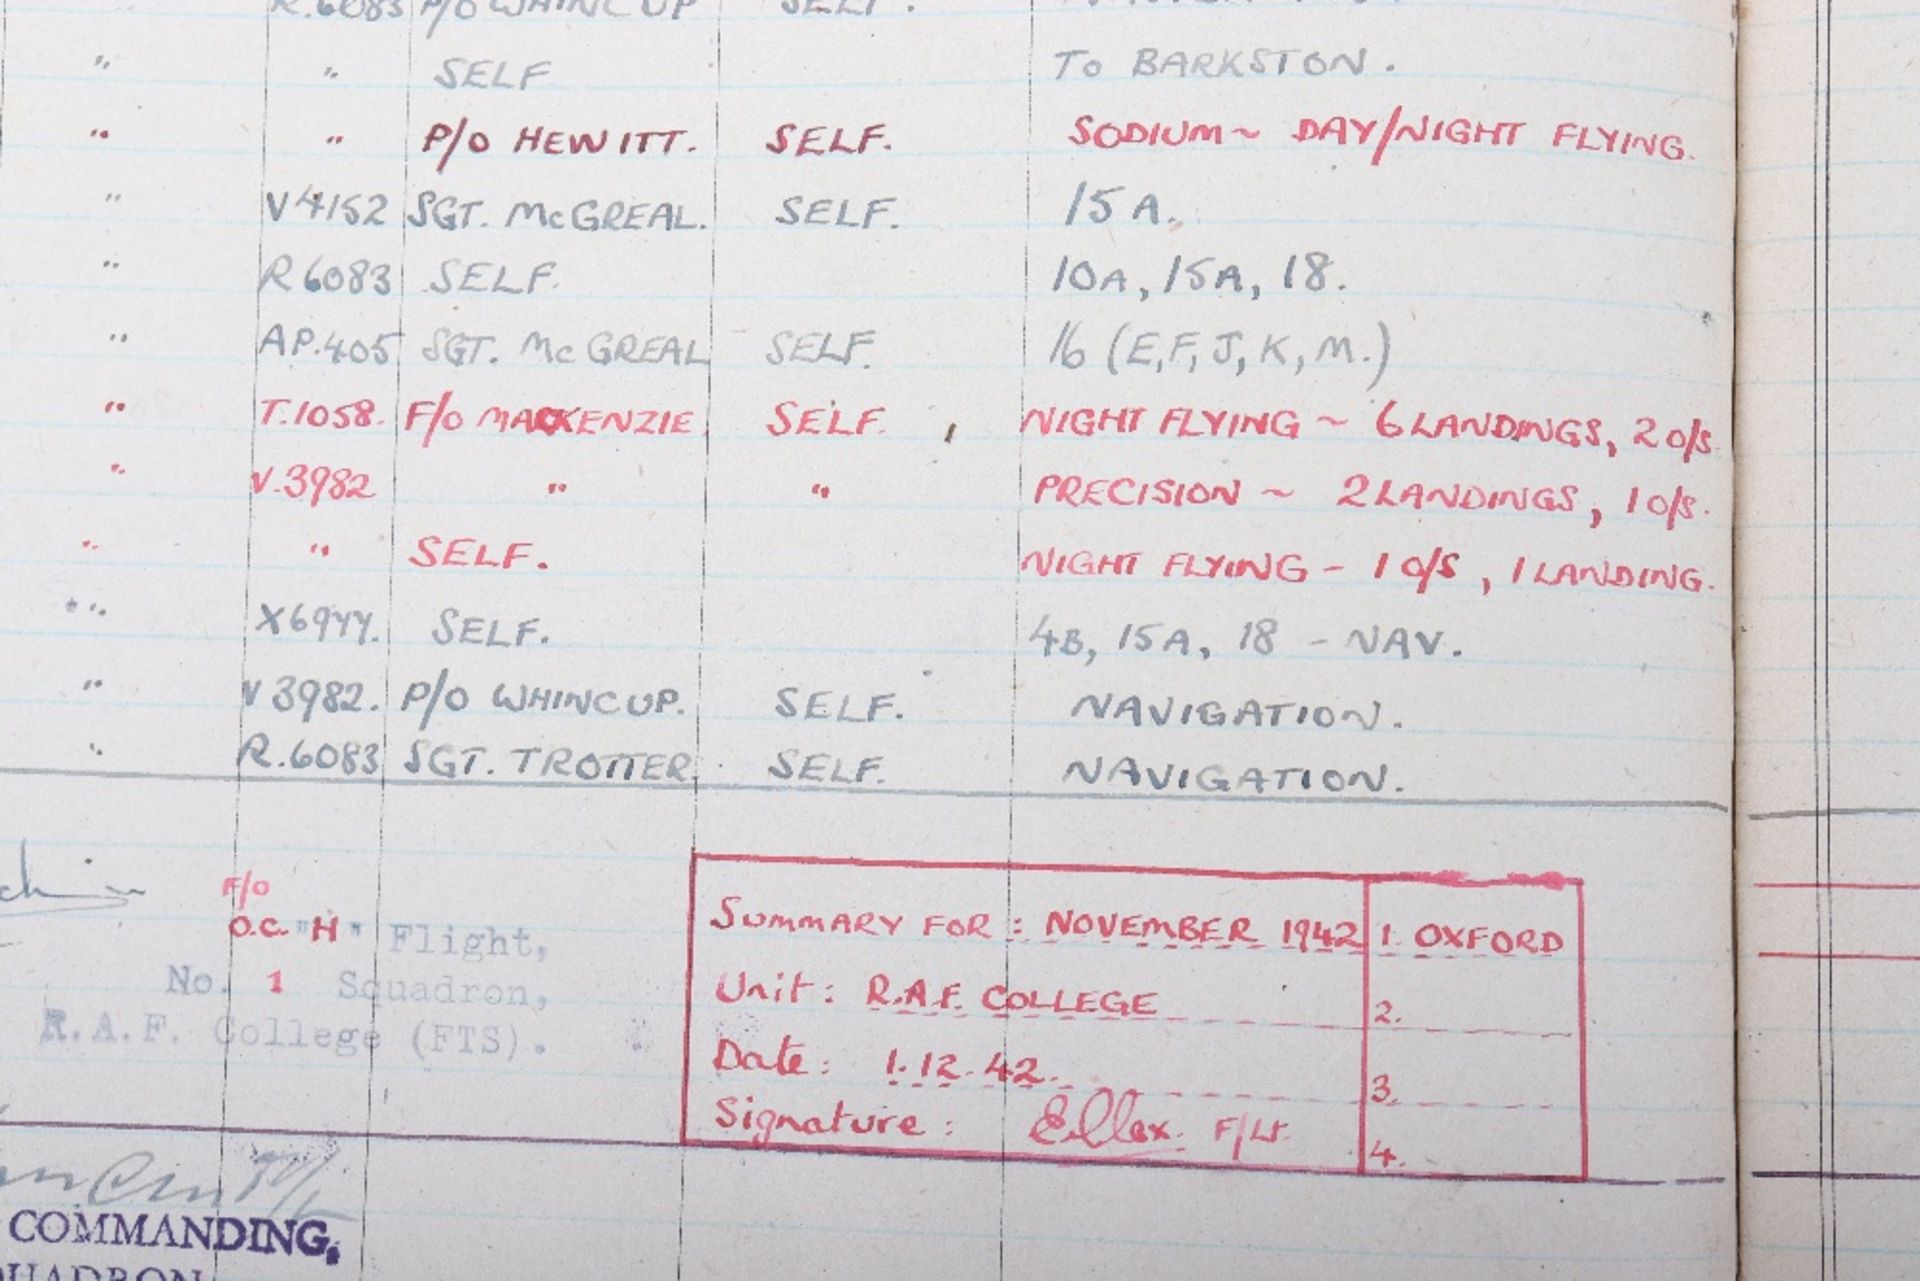 R.6083 P/O WHINCUP SELF.
" " SELF TO BARKSTON.
" " P/O HEWITT. SELF. SODIUM ~ DAY/NIGHT FLYING.
" V4152 SGT. McGREAL. SELF. 15A.
" R6083 SELF. 10A, 15A, 18.
" AP.405 SGT. McGREAL SELF. 16 (E,F,J,K,M.)
" T.1058. F/O MACKENZIE. SELF. NIGHT FLYING ~ 6 LANDINGS, 2 O/S.
" V.3982 " " PRECISION ~ 2 LANDINGS, 1 O/S.
" " SELF. NIGHT FLYING - 1 O/S, 1 LANDING.
" SELF. 4B, 15A, 18 - NAV.
" V3982. P/O WHINCUP. SELF. NAVIGATION.
" R.6083 SGT. TROTTER. SELF. NAVIGATION.
F/O
O.C. "H" Flight,
No. 1 Squadron,
R.A.F. College (FTS).
SUMMARY FOR: NOVEMBER 1942 1. OXFORD
Unit: R.A.F. COLLEGE 2.
Date: 1.12.42. 3.
Signature: F/Lt. 4.
COMMANDING,